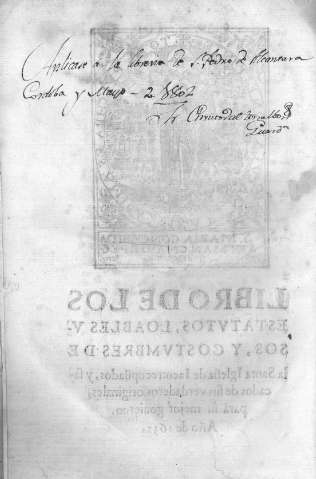 Aplicase a la libreria de S. Pedro de Alcantara
Cordoba y Mayo - 2 1802
Fr
Guardn
S. MARIA CONCEBIDA
LIBRO DE LOS
ESTATVTOS, LOABLES V-
SOS, Y COSTVMBRES DE
la Santa Iglesia de Iaen recopilados, y sa-
cados de sus verdaderos originales,
para su mejor gouierno,
Año de